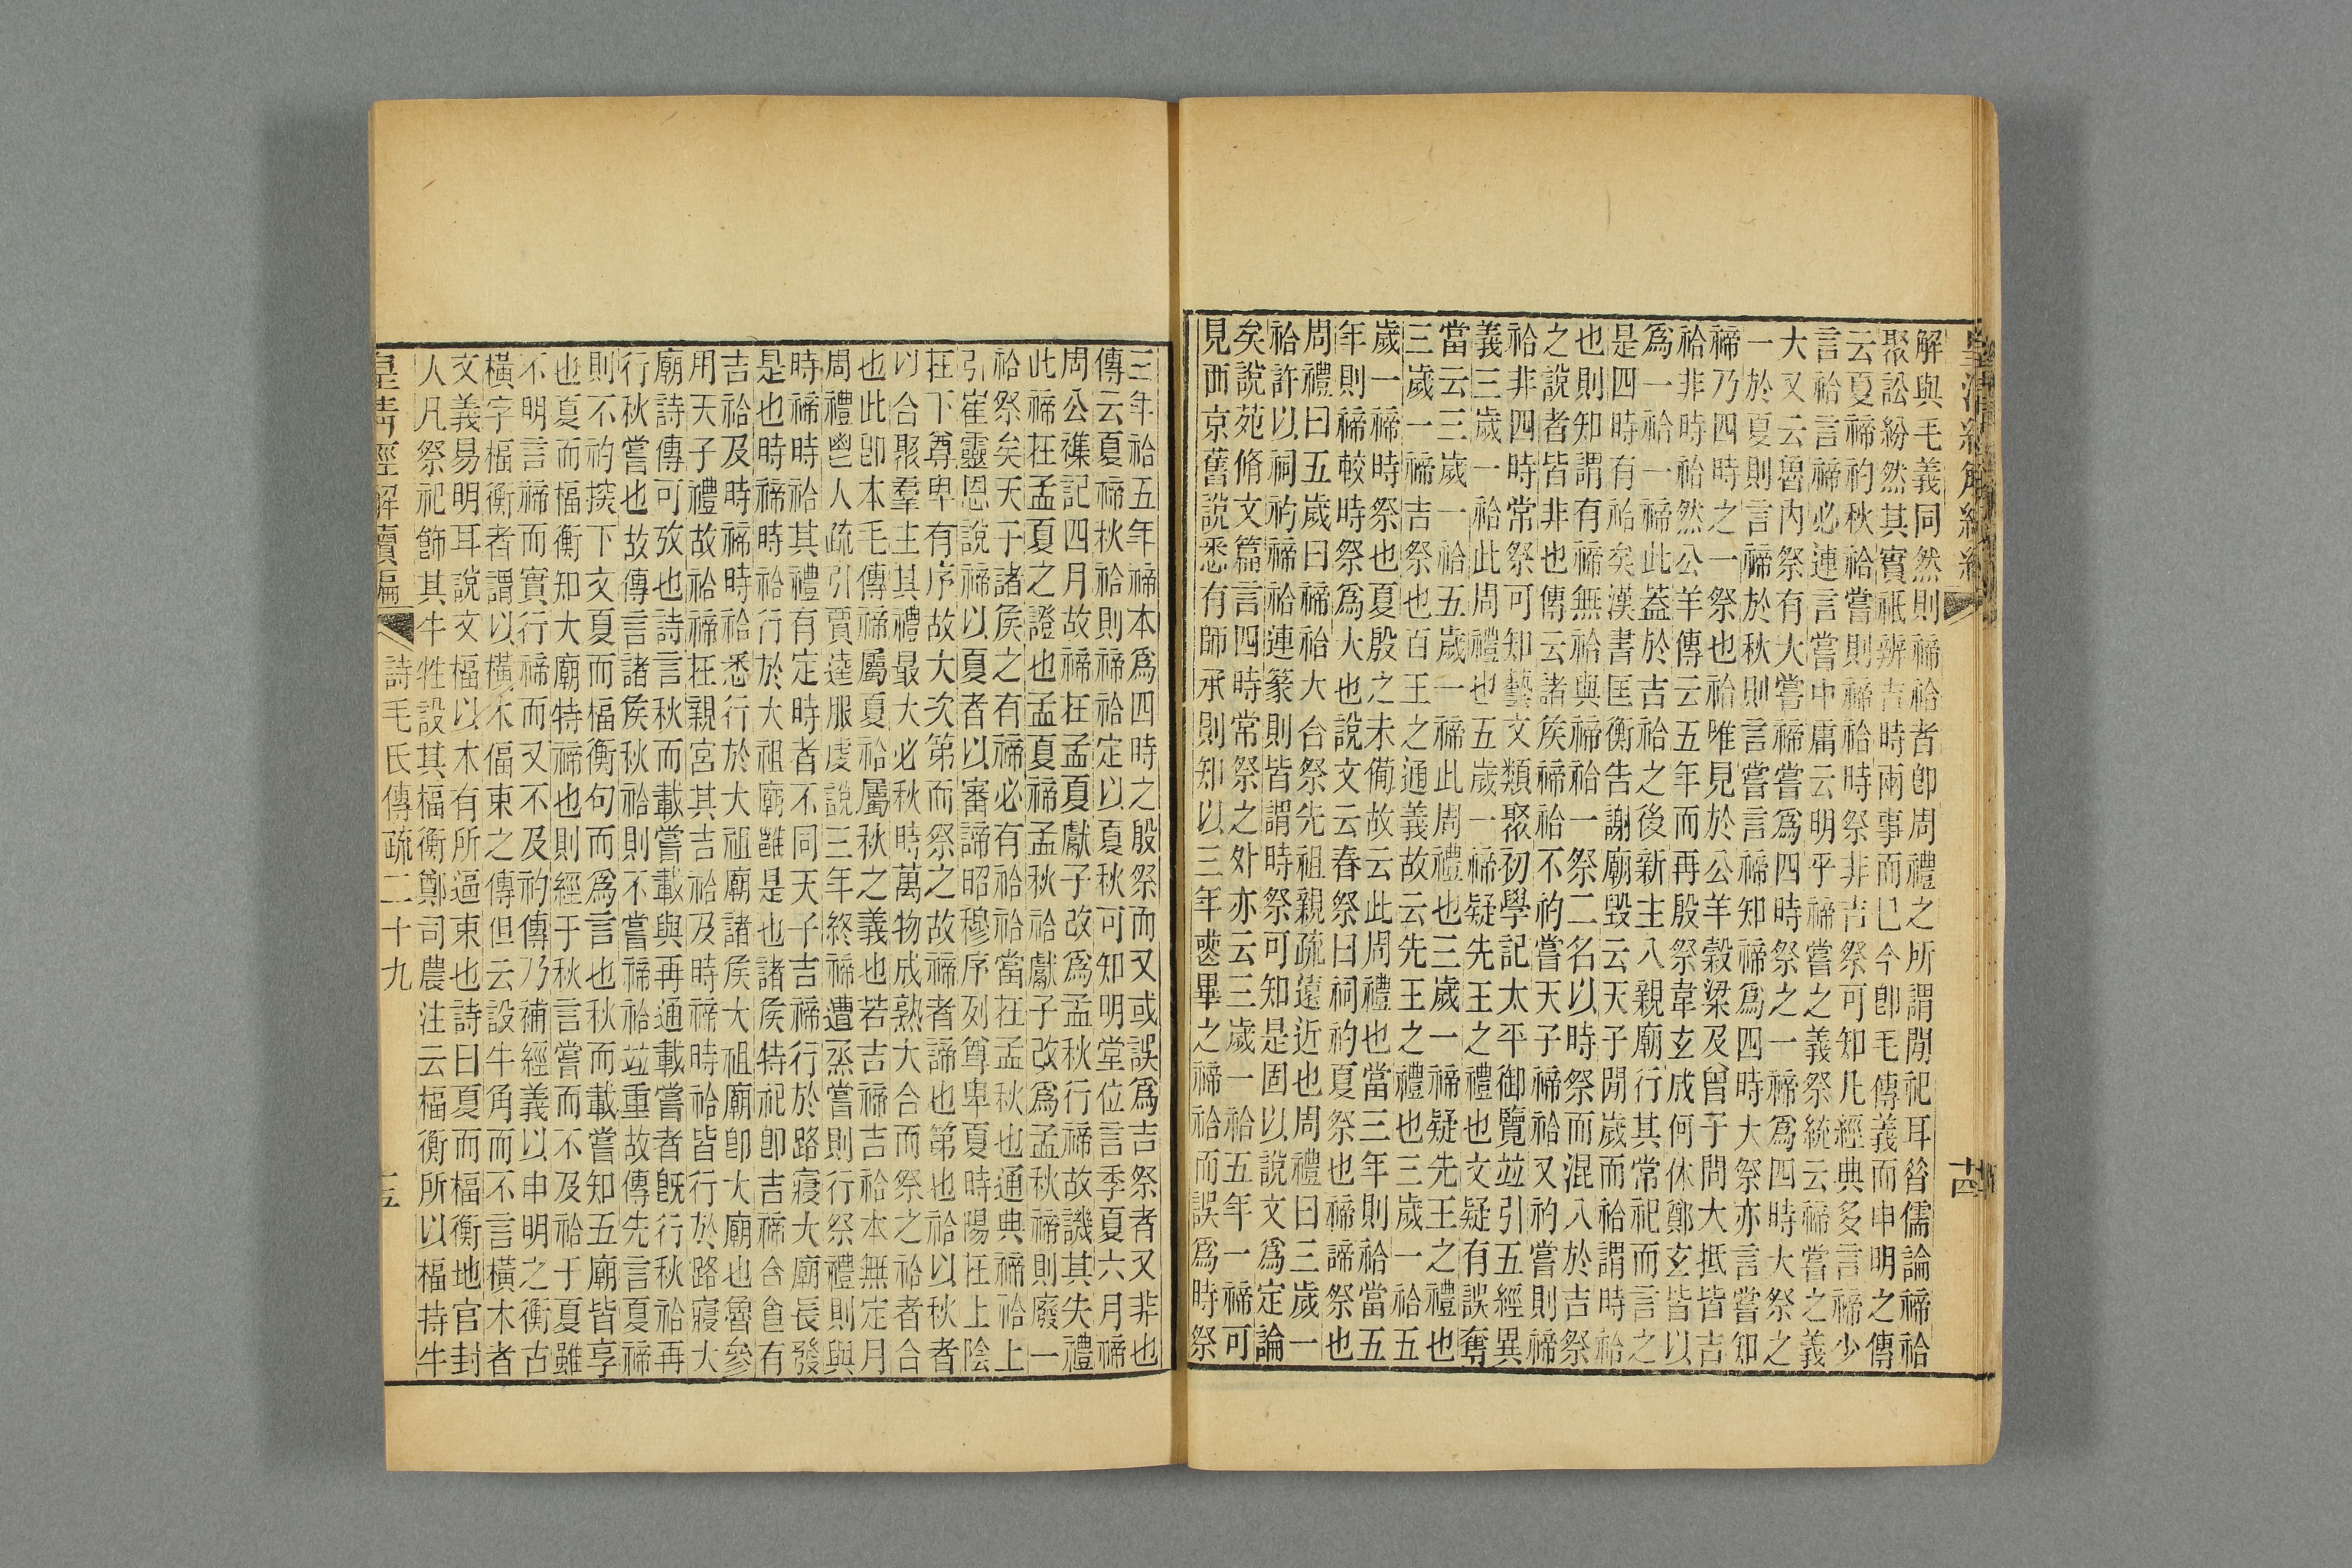 皇清經解續編
十四
解與毛義同然則禘祫者卽周禮之所謂閒祀耳昝儒論禘祫
聚訟紛然其實祇辨吉時兩事而巳今卽毛傳義而申明之傳
云夏禘礿秋祫嘗則禘祫時祭非吉祭可知凡經典多言禘少
言祫言禘必連言嘗中庸云明乎禘嘗之義祭統云禘嘗之義
大又云魯內祭有大嘗禘嘗爲四時祭之一禘爲四時大祭之
一於夏則言禘於秋則言嘗言禘知禘爲四時大祭亦言嘗知
禘乃四時之一祭也祫唯見於公羊榖梁及曾子問大抵皆吉
祫非時祫然公羊傳云五年而再殷祭韋玄成何休鄭玄皆以
爲一祫一禘此葢於吉祫之後新主入親廟行其常祀而言之
是四時有祫矣漢書匡衡告謝廟毀云天子閒歲而祫謂時祫
也則知謂有禘無祫與禘祫一祭二名以時祭而混入於吉祭
之說者皆非也傳云諸矦禘祫不礿嘗天子禘祫又礿嘗則禘
祫非四時常祭可知藝文類聚初學記太平御覽竝引五經異
義三歲一祫此周禮也五歲一禘疑先王之禮也文疑有誤奪
當云三歲一祫五歲一禘此周禮也三歲一禘疑先王之禮也
三歲一禘吉祭也百王之通義故云先王之禮也三歲一祫五
歲一禘時祭也夏殷之未備故云此周禮也當三年則祫當五
年則禘較時祭爲大也說文云春祭曰祠礿夏祭也禘諦祭也
周禮曰五歲曰禘祫大合祭先祖親疏遠近也周禮曰三歲一
祫許以祠礿禘祫連篆則皆謂時祭可知是固以說文爲定論
矣說苑脩文篇言四時常祭之外亦云三歲一祫五年一禘可
見西京舊說悉有師承則知以三年喪畢之禘祫而誤爲時祭
三年祫五年禘本爲四時之殷祭而又或誤爲吉祭者又非也
傳云夏禘秋祫則禘祫定以夏秋可知明堂位言季夏六月禘
周公襍記四月故禘在孟夏獻子改爲孟秋行禘故譏其失禮
此禘在孟夏之證也孟夏禘孟秋祫獻子改爲孟秋禘則廢一
祫祭矣天子諸矦之有禘必有祫祫當在孟秋也通典禘祫上
引崔靈恩說禘以夏者以審諦昭穆序列尊卑夏時陽在上陰
在下尊卑有序故大次第而祭之故禘者諦也第也祫以秋者
以合聚羣主其禮最大必秋時萬物成熟大合而祭之祫者合
也此卽本毛傳禘屬夏祫屬秋之義也若吉禘吉祫本無定月
周禮鬯人疏引賈逵服虔說三年終禘遭烝嘗則行祭禮則與
時禘時祫其禮有定時者不同天子吉禘行於路寢大廟長發
是也時禘時祫行於大祖廟雝是也諸矦特祀卽吉禘有
吉祫及時禘時祫悉行於大祖廟諸矦大祖廟卽大廟也魯參
用天子禮故祫禘在親宮其吉祫及時禘時祫皆行於路寢大
廟詩傳可攷也詩言秋而載嘗載與再通載嘗者旣行秋祫再
行秋嘗也故傳言諸矦秋祫則不嘗禘祫竝重故傳先言夏禘
則不礿㨿下文夏而楅衡句而爲言也秋而載嘗知五廟皆享
也夏而楅衡知大廟特禘也則經于秋言嘗而不及祫于夏雖
不明言禘而實行禘而又不及礿傳乃補經義以申明之衡古
橫字楅衡者謂以橫木偪束之傳但云設牛角而不言橫木者
文義易明耳說文楅以木有所逼束也詩曰夏而楅衡地官封
人凡祭祀飾其牛牲設其楅衡鄭司農注云楅衡所以楅持牛
皇清經解續編
詩毛氏傳疏二十九
十五